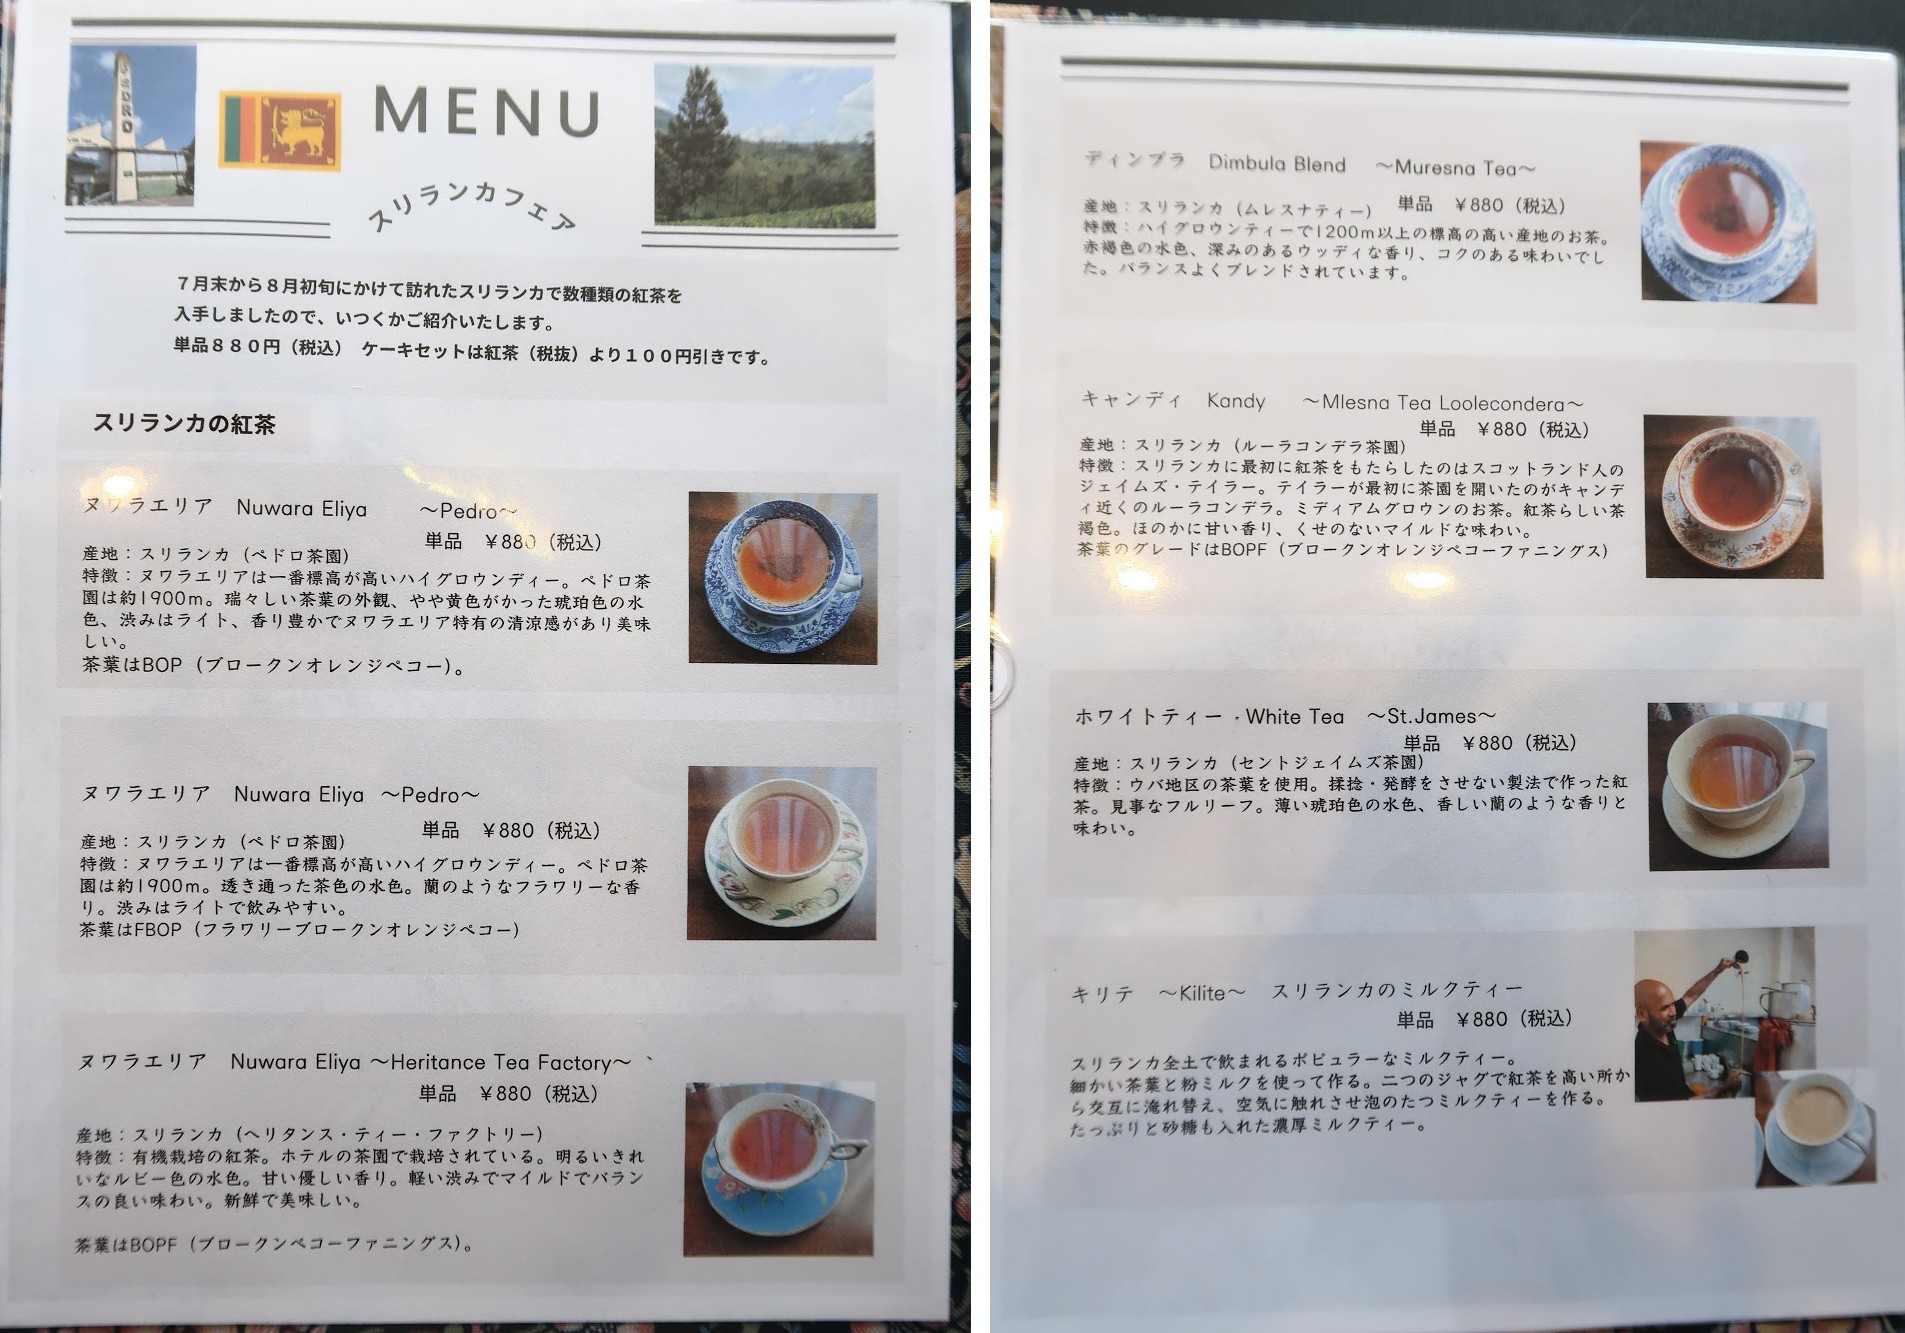 PEDRO
MENU
スリランカフェア
7月末から8月初旬にかけて訪れたスリランカで数種類の紅茶を
入手しましたので、いつくかご紹介いたします。
単品880円（税込） ケーキセットは紅茶（税抜）より100円引きです。
スリランカの紅茶
ヌワラエリア Nuwara Eliya ～Pedro～
単品 ￥880（税込）
産地：スリランカ（ペドロ茶園）
特徴：ヌワラエリアは一番標高が高いハイグロウンディー。ペドロ茶
園は約1900m。瑞々しい茶葉の外観、やや黄色がかった琥珀色の水
色、渋みはライト、香り豊かでヌワラエリア特有の清涼感があり美味
しい。
茶葉はBOP（ブロークンオレンジペコー）。
ヌワラエリア Nuwara Eliya ～Pedro～
単品 ￥880（税込）
産地：スリランカ（ペドロ茶園）
特徴：ヌワラエリアは一番標高が高いハイグロウンディー。ペドロ茶
園は約1900m。透き通った茶色の水色。蘭のようなフラワリーな香
り。渋みはライトで飲みやすい。
茶葉はFBOP（フラワリーブロークンオレンジペコー）
ヌワラエリア Nuwara Eliya ～Heritance Tea Factory～
単品 ￥880（税込）
産地：スリランカ（ヘリタンス・ティー・ファクトリー）
特徴：有機栽培の紅茶。ホテルの茶園で栽培されている。明るいきれ
いなルビー色の水色。甘い優しい香り。軽い渋みでマイルドでバラン
スの良い味わい。新鮮で美味しい。
茶葉はBOPF（ブロークンペコーファニングス）。
ディンブラ Dimbula Blend ～Muresna Tea～
単品 ￥880（税込）
産地：スリランカ（ムレスナティー）
特徴：ハイグロウンティーで1200m以上の標高の高い産地のお茶。
赤褐色の水色、深みのあるウッディな香り、コクのある味わいでし
た。バランスよくブレンドされています。
キャンディ Kandy ～Mlesna Tea Loolecondera～
単品 ￥880（税込）
産地：スリランカ（ルーラコンデラ茶園）
特徴：スリランカに最初に紅茶をもたらしたのはスコットランド人の
ジェイムズ・テイラー。テイラーが最初に茶園を開いたのがキャンデ
ィ近くのルーラコンデラ。ミディアムグロウンのお茶。紅茶らしい茶
褐色。ほのかに甘い香り、くせのないマイルドな味わい。
茶葉のグレードはBOPF（ブロークンオレンジペコーファニングス）
ホワイトティー・White Tea ～St.James～
単品 ￥880（税込）
産地：スリランカ（セントジェイムズ茶園）
特徴：ウバ地区の茶葉を使用。揉捻・発酵をさせない製法で作った紅
茶。見事なフルリーフ。薄い琥珀色の水色、香しい蘭のような香りと
味わい。
キリテ ～Kilite～ スリランカのミルクティー
単品 ￥880（税込）
スリランカ全土で飲まれるポピュラーなミルクティー。
細かい茶葉と粉ミルクを使って作る。二つのジャグで紅茶を高い所か
ら交互に淹れ替え、空気に触れさせ泡のたつミルクティーを作る。
たっぷりと砂糖も入れた濃厚ミルクティー。